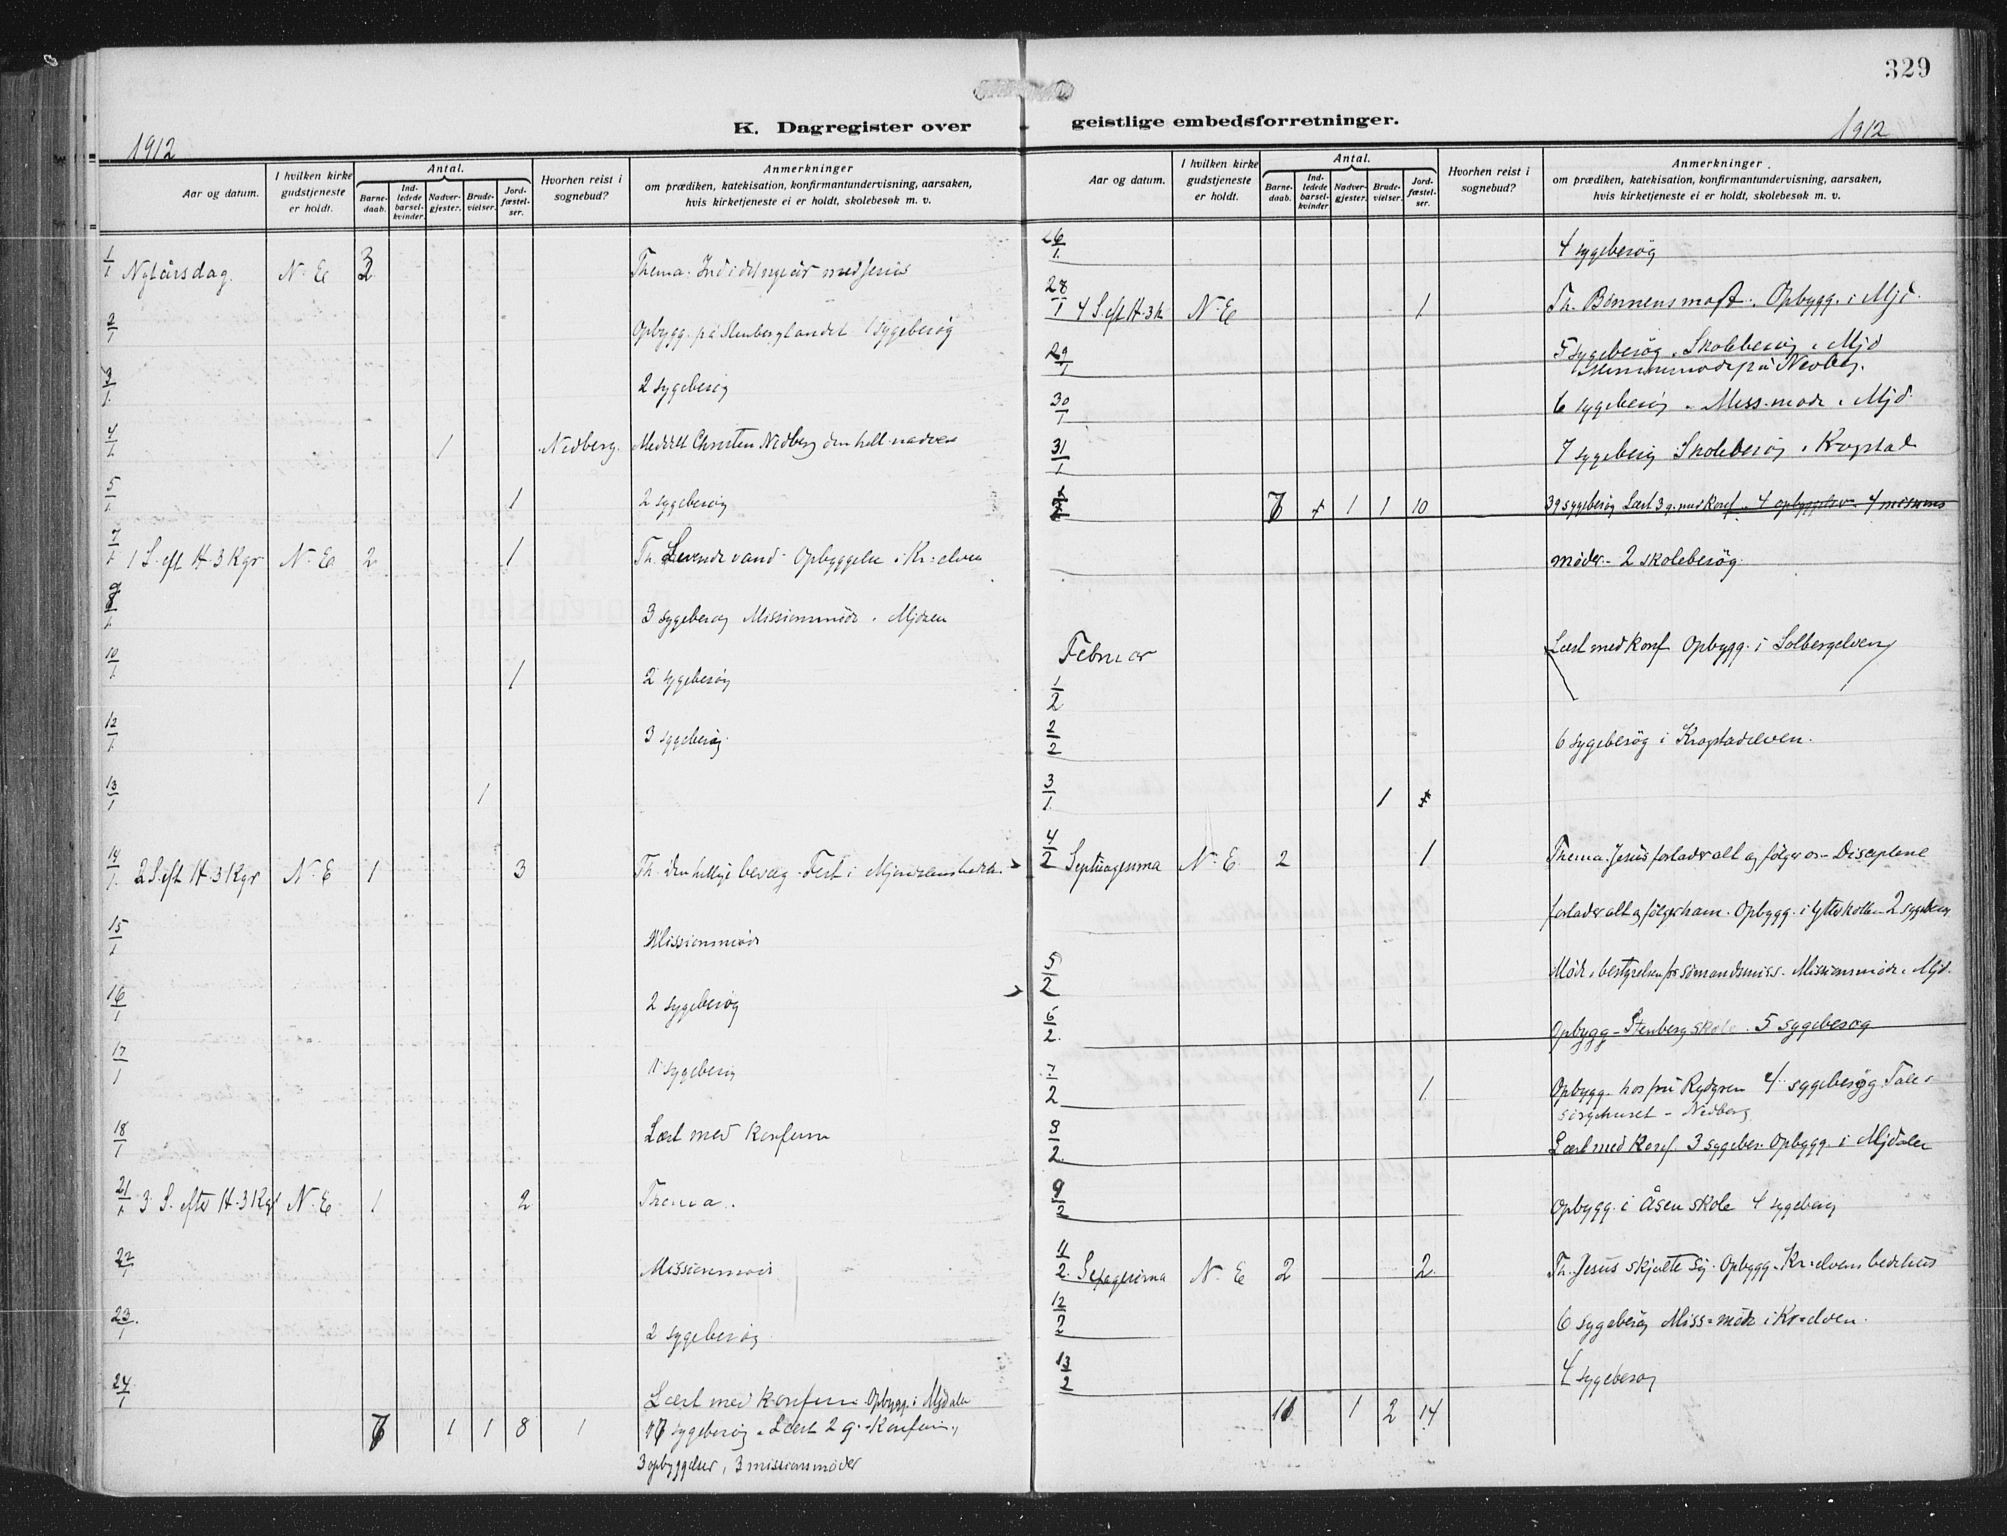 329
K. Dagregister over geistlige embedsforretninger.
1912
1912
Aar og datum.
I hvilken kirke gudstjeneste er holdt.
Antal.
Barne-daab.
Ind-ledede barsel-kvinder
Nadver-gjester.
Brude-vielser.
Jord-fæstel-ser.
Hvorhen reist i sognebud?
Anmerkninger
om prædiken, katekisation, konfirmantundervisning, aarsaken,
hvis kirketjeneste ei er holdt, skolebesøk m. v.
1/1 Nytårsdag. N. E Thema. Ind i det nye år med Jesus
2/1 Opbygg. på Stenberglandet 1 sygebesøg
3/1 2 sygebesøg
4/1 1 Nedberg. Meddelt Christen Nedberg den hell. nadver
5/1 1 2 sygebesøg
7/1 1 S. eft H. 3 Kgr N. E 2 1 Th. Levende vand Opbyggelse i Kr=elven
3 sygebesøg Missionsmøde i Mjdalen
10/1 1 2 sygebesøg
12/1 3 sygebesøg.
13/1 1
14/1 2 S. eft H. 3 Kgr N. E 1 3 Th. Den hellige Fest i
15/1 Missionsmøde
16/1 2 sygebesøg
17/1 sygebesøg
18/1 Læst med konferm
21/1 3 S. efter H. 3 Kgr N. E 1 2 Thema.
22/1 Missionsmøde
23/1 2 sygebesøg
24/1 Læst med konferm Opbygg. i Mjdalen
7 1 1 8 1 17 sygebesøg. Læst 2 g. Konferm.,
3 opbyggelser, 3 missionsmøder
Aar og datum.
I hvilken kirke gudstjeneste er holdt.
Antal.
Barne-daab.
Ind-ledede barsel-kvinder
Nadver-gjester.
Brude-vielser.
Jord-fæstel-ser.
Hvorhen reist i sognebud?
Anmerkninger
om prædiken, katekisation, konfirmantundervisning, aarsaken,
hvis kirketjeneste ei er holdt, skolebesøk m. v.
26/1 4 sygebesøg
28/1 4 S. eft H. 3 k N. E 1 Th. Bønnens magt. Opbygg. i Mjd.
29/1 5 sygebesøg. Skolebesøg i Mjd
på Nedberg.
30/1 6 sygebesøg. Miss. møde i Mjd.
31/1 7 sygebesøg Skolebesøg i Krogstad
7 1 1 10 39 sygebesøg Læst 3 g. med konf. 4 opbyggelser 4 missions
møder. 2 skolebesøg.
Februar Læst med konf Opbygg. i Solbergelven
1/2
2/2 6 sygebesøg i Krogstadelven.
3/1 1
4/2 Septuagesima N. E 2 1 Thema. Jesus forlader alt og følger os. Disciplene
forlader alt og følger ham. Opbygg. i Ytterkollen 2 sygebesøg
5/2 Møde i bestyrelsen for sømandsmiss. Missionsmøde i Mjd.
6/2 Opbygg. Stenberg skole. 5 sygebesøg
7/2 1 Opbygg. hos fru Rydgren 4 sygebesøg. Tale i
sørgehuset Nedberg
8/2 Læst med konf. 3 sygebes. Opbygg. i Mjdalen
9/2 Opbygg. i Åsen skole 4 sygebesøg
11/2 Sexagesima N. E 2 2 Th. Jesus skjulte sig. Opbygg. Kr=elvens bedehus
12/2 6 sygebesøg Miss=møde i Kr=elven.
13/2 4 sygebesøg
11 1 2 14